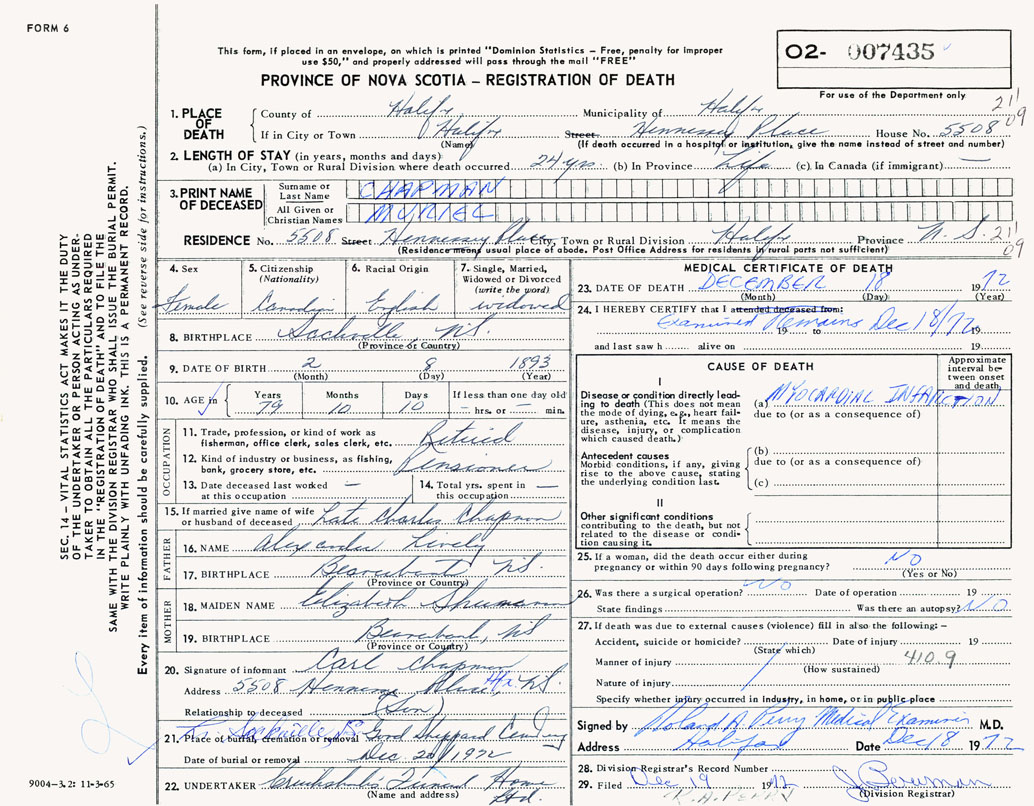 FORM 6
This form, if placed in an envelope, on which is printed "Dominion Statistics – Free, penalty for improper
use $50," and properly addressed will pass through the mail "FREE"
PROVINCE OF NOVA SCOTIA – REGISTRATION OF DEATH
O2- 007435
For use of the Department only
211
09
1. PLACE OF DEATH
County of Halifx Municipality of Halifx
If in City or Town Halifx Street Hennessy Place House No. 5508
(Name) (If death occurred in a hospital or institution, give the name instead of street and number)
2. LENGTH OF STAY (in years, months and days)
(a) In City, Town or Rural Division where death occurred 24 yrs. (b) In Province Life (c) In Canada (if immigrant) —
3. PRINT NAME OF DECEASED
Surname or Last Name CHAPMAN
All Given or Christian Names MURIEL
RESIDENCE No. 5508 Street Hennessy Place City, Town or Rural Division Halifx Province N.S.
(Residence means usual place of abode. Post Office Address for residents in rural parts not sufficient)
211
09
4. Sex
Female
5. Citizenship
(Nationality)
Canadian
6. Racial Origin
English
7. Single, Married,
Widowed or Divorced
(write the word)
widowed
8. BIRTHPLACE Sackville, N.S.
(Province or Country)
9. DATE OF BIRTH 2 8 1893
(Month) (Day) (Year)
10. AGE in Years Months Days If less than one day old
79 10 10 — hrs. or — min.
OCCUPATION
11. Trade, profession, or kind of work as
fisherman, office clerk, sales clerk, etc. Retired
12. Kind of industry or business, as fishing,
bank, grocery store, etc. Pensioner
13. Date deceased last worked
at this occupation —
14. Total yrs. spent in
this occupation —
15. If married give name of wife
or husband of deceased Late Charles Chapman
FATHER
16. NAME Alexander Lively
17. BIRTHPLACE Beaverbank N.S.
(Province or Country)
MOTHER
18. MAIDEN NAME Elizabeth
19. BIRTHPLACE Beaverbank, NS
(Province or Country)
20. Signature of informant Carl Chapman
Address 5508 Hennessy Place, Hfx. N.S.
Relationship to deceased (Son)
21. Place of burial, cremation or removal Lr. Sackville N.S. Good Sheppard Cemetery
Date of burial or removal Dec. 20/1972
22. UNDERTAKER Cruikshank's Funeral Home Ltd.
(Name and address)
MEDICAL CERTIFICATE OF DEATH
23. DATE OF DEATH DECEMBER 18 1972
(Month) (Day) (Year)
24. I HEREBY CERTIFY that I attended deceased from:
Examined Remains Dec 18/72
19 to 19
and last saw h alive on 19
CAUSE OF DEATH
Approximate interval between onset and death
I
Disease or condition directly leading to death (This does not mean the mode of dying, e.g., heart failure, asthenia, etc. It means the disease, injury, or complication which caused death.)
(a) MYOCARDIAL INFARCTION
due to (or as a consequence of)
Antecedent causes
Morbid conditions, if any, giving rise to the above cause, stating the underlying condition last.
(b)
due to (or as a consequence of)
(c)
II
Other significant conditions
contributing to the death, but not related to the disease or condition causing it.
25. If a woman, did the death occur either during
pregnancy or within 90 days following pregnancy? NO
(Yes or No)
26. Was there a surgical operation? NO Date of operation 19
State findings Was there an autopsy? NO
27. If death was due to external causes (violence) fill in also the following: –
Accident, suicide or homicide? Date of injury 19
(State which)
Manner of injury 410.9
(How sustained)
Nature of injury
Specify whether injury occurred in industry, in home, or in public place
Signed by Roland A. Perry Medical Examiner M.D.
Address Halifax Date Dec 18 1972
28. Division Registrar's Record Number
29. Filed Dec 19 1972 J. Bowman
(Division Registrar)
R.A. PERRY
SEC. 14 – VITAL STATISTICS ACT MAKES IT THE DUTY
OF THE UNDERTAKER OR PERSON ACTING AS UNDER-
TAKER TO OBTAIN ALL THE PARTICULARS REQUIRED
IN THE "REGISTRATION OF DEATH" AND TO FILE THE
SAME WITH THE DIVISION REGISTRAR WHO SHALL ISSUE THE BURIAL PERMIT.
WRITE PLAINLY WITH UNFADING INK. THIS IS A PERMANENT RECORD.
Every item of information should be carefully supplied. (See reverse side for instructions.)
9004-3.2: 11-3-65